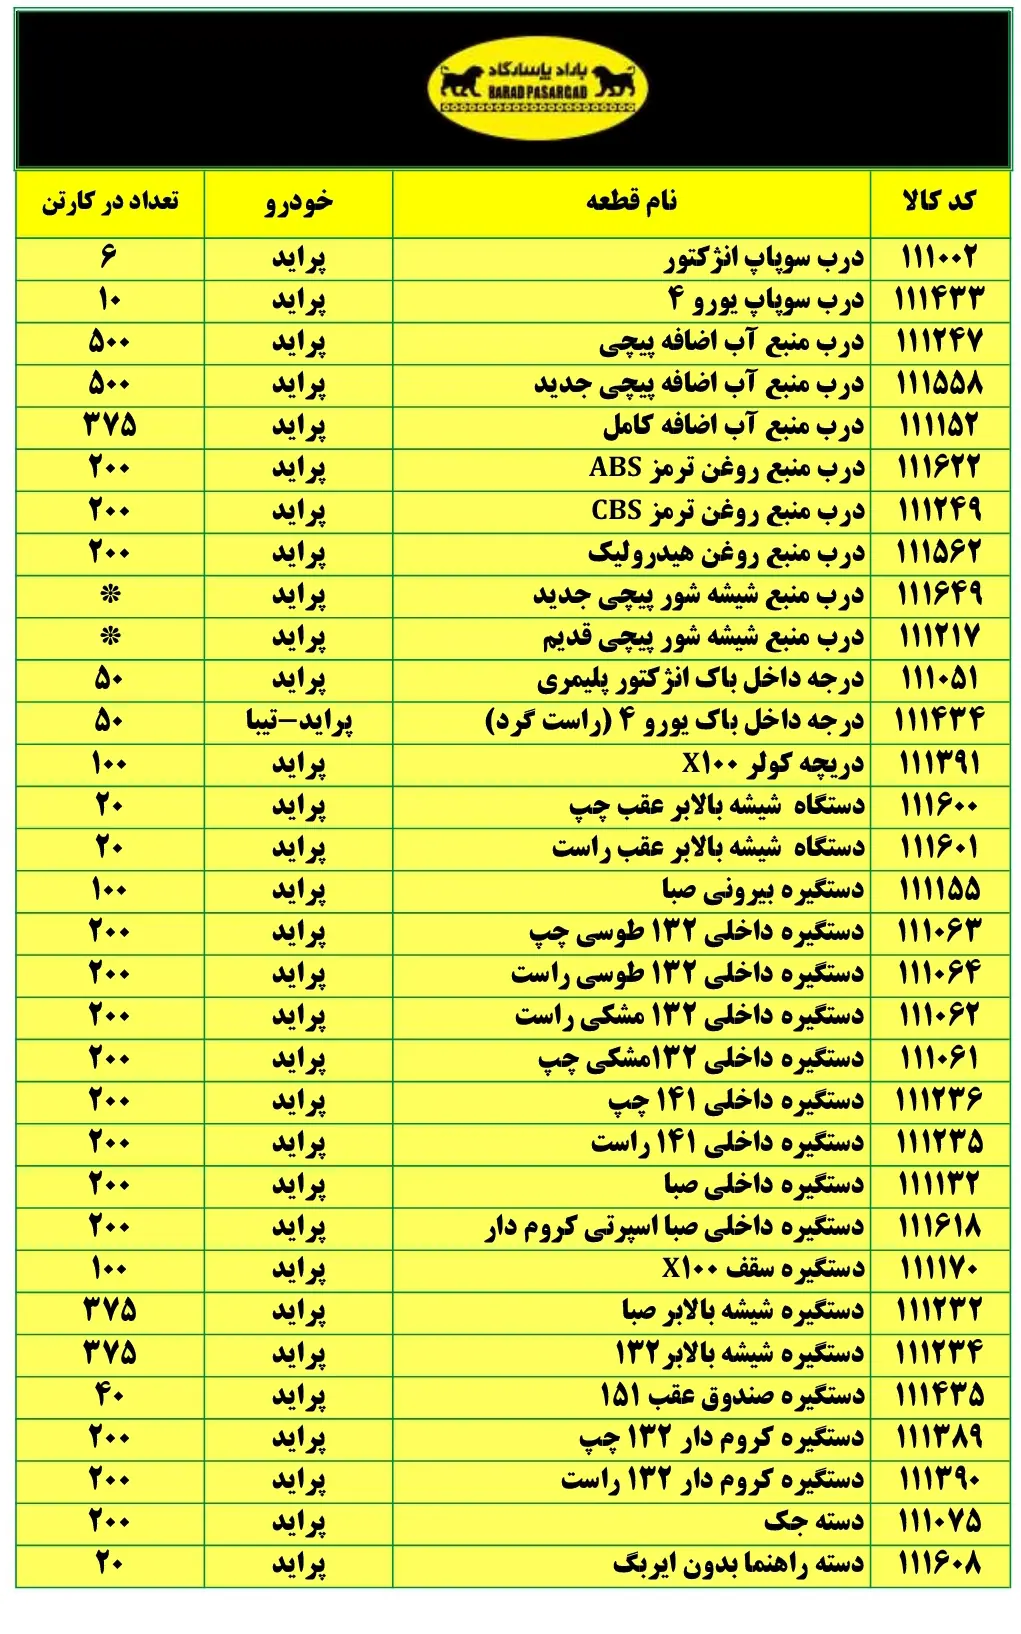 باراد پاسارگاد
BARAD PASARGAD
کد کالا نام قطعه خودرو تعداد در کارتن
۱۱۱۰۰۲ درب سوپاپ انژکتور پراید ۶
۱۱۱۴۳۳ درب سوپاپ یورو ۴ پراید ۱۰
۱۱۱۲۴۷ درب منبع آب اضافه پیچی پراید ۵۰۰
۱۱۱۵۵۸ درب منبع آب اضافه پیچی جدید پراید ۵۰۰
۱۱۱۱۵۲ درب منبع آب اضافه کامل پراید ۳۷۵
۱۱۱۶۲۲ درب منبع روغن ترمز ABS پراید ۲۰۰
۱۱۱۲۴۹ درب منبع روغن ترمز CBS پراید ۲۰۰
۱۱۱۵۶۲ درب منبع روغن هیدرولیک پراید ۲۰۰
۱۱۱۶۴۹ درب منبع شیشه شور پیچی جدید پراید ❊
۱۱۱۲۱۷ درب منبع شیشه شور پیچی قدیم پراید ❊
۱۱۱۰۵۱ درجه داخل باک انژکتور پلیمری پراید ۵۰
۱۱۱۴۳۴ درجه داخل باک یورو ۴ (راست گرد) پراید-تیبا ۵۰
۱۱۱۳۹۱ دریچه کولر X۱۰۰ پراید ۱۰۰
۱۱۱۶۰۰ دستگاه شیشه بالابر عقب چپ پراید ۲۰
۱۱۱۶۰۱ دستگاه شیشه بالابر عقب راست پراید ۲۰
۱۱۱۱۵۵ دستگیره بیرونی صبا پراید ۱۰۰
۱۱۱۰۶۳ دستگیره داخلی ۱۳۲ طوسی چپ پراید ۲۰۰
۱۱۱۰۶۴ دستگیره داخلی ۱۳۲ طوسی راست پراید ۲۰۰
۱۱۱۰۶۲ دستگیره داخلی ۱۳۲ مشکی راست پراید ۲۰۰
۱۱۱۰۶۱ دستگیره داخلی ۱۳۲مشکی چپ پراید ۲۰۰
۱۱۱۲۳۶ دستگیره داخلی ۱۴۱ چپ پراید ۲۰۰
۱۱۱۲۳۵ دستگیره داخلی ۱۴۱ راست پراید ۲۰۰
۱۱۱۱۳۲ دستگیره داخلی صبا پراید ۲۰۰
۱۱۱۶۱۸ دستگیره داخلی صبا اسپرتی کروم دار پراید ۲۰۰
۱۱۱۱۷۰ دستگیره سقف X۱۰۰ پراید ۱۰۰
۱۱۱۲۳۲ دستگیره شیشه بالابر صبا پراید ۳۷۵
۱۱۱۲۳۴ دستگیره شیشه بالابر۱۳۲ پراید ۳۷۵
۱۱۱۴۳۵ دستگیره صندوق عقب ۱۵۱ پراید ۴۰
۱۱۱۳۸۹ دستگیره کروم دار ۱۳۲ چپ پراید ۲۰۰
۱۱۱۳۹۰ دستگیره کروم دار ۱۳۲ راست پراید ۲۰۰
۱۱۱۰۷۵ دسته جک پراید ۲۰۰
۱۱۱۶۰۸ دسته راهنما بدون ایربگ پراید ۲۰